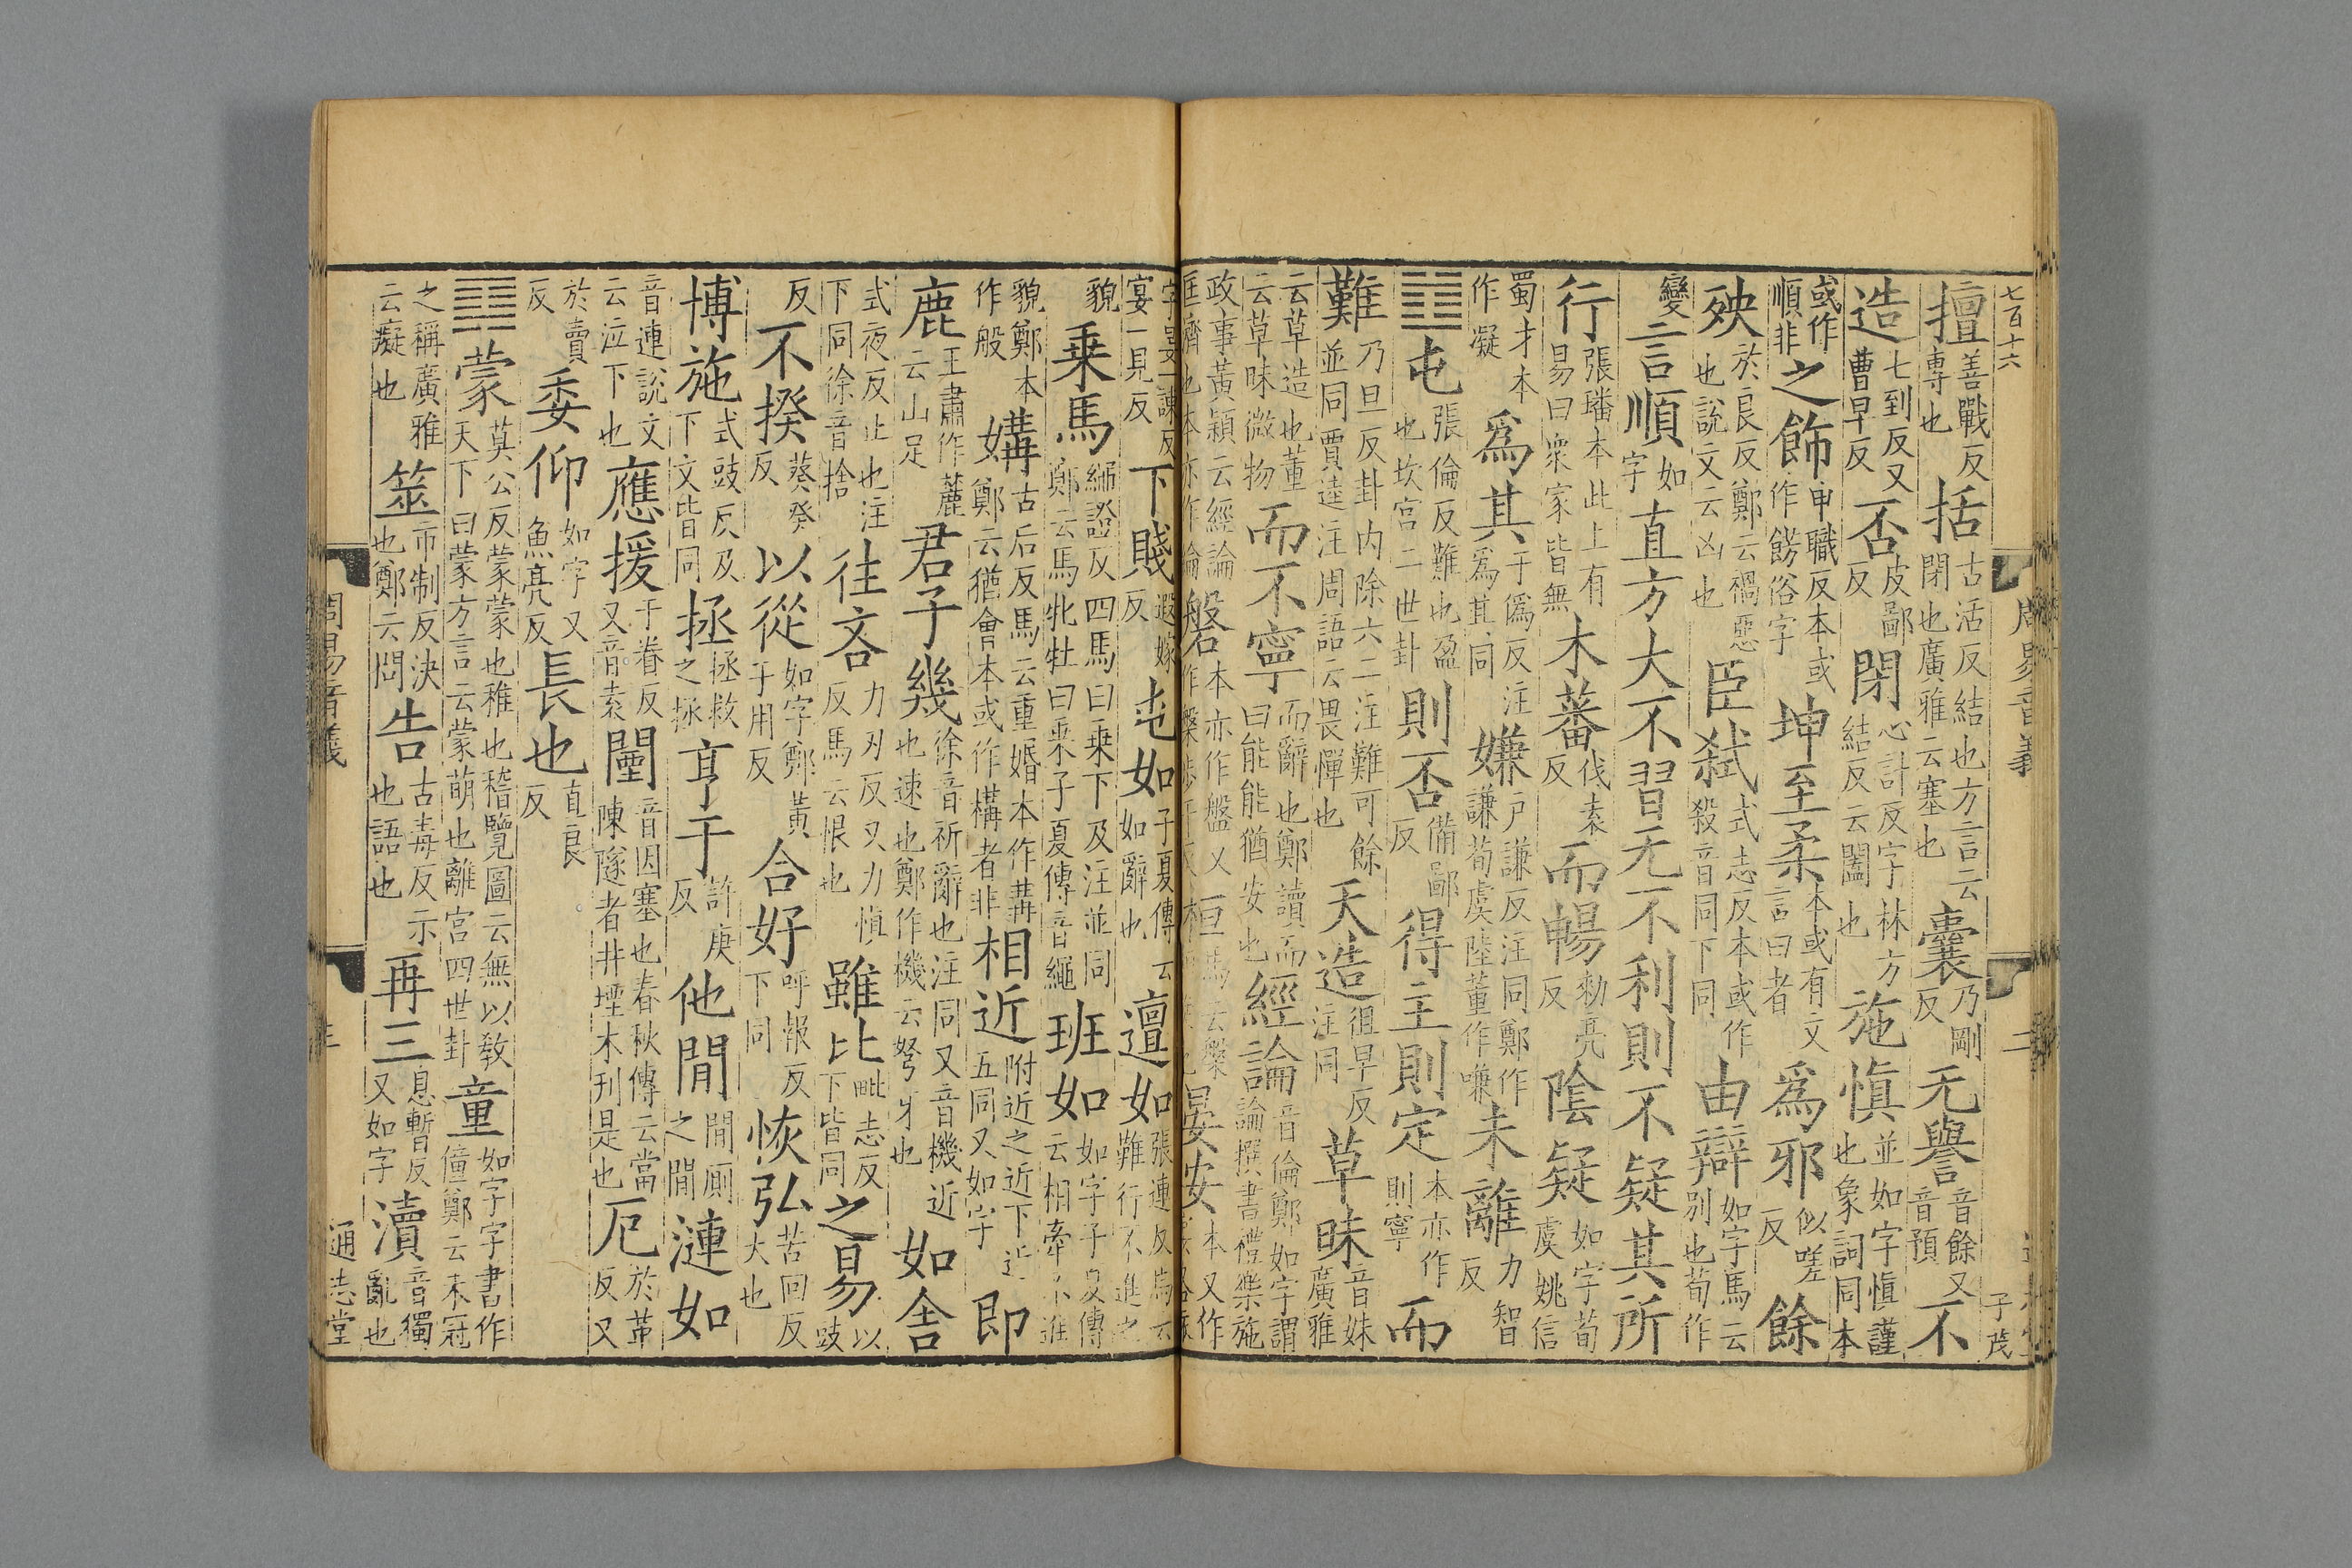 七百十六
子茂
擅善戰反專也括古活反結也方言云閉也廣雅云塞也囊乃剛反无譽音餘又音預不
造七到反又曹早反否皮鄙反閉心計反字林方結反云闔也施愼並如字愼謹也象詞同本
或作順非之飾申職反本或作餝俗字坤至柔本或有文言曰者爲邪似嗟反餘
殃於良反鄭云禍惡也說文云凶也臣弑式志反本或作殺音同下同由辯如字馬云別也荀作
變言順如字直方大不習无不利則不疑其所
行張璠本此上有易曰衆家皆無木蕃伐袁反而暢勑亮反陰疑如字荀虞姚信
蜀才本作凝爲其于僞反注爲其同嫌戶謙反注同鄭作謙荀虞陸董作嗛未離力智反
䷂屯張倫反難也盈也坎宮二世卦則否備鄙反得主則定本亦作則寧而
難乃旦反卦內除六二注難可餘並同賈逵注周語云畏憚也天造徂早反注同草昧音妹廣雅
云草造也董云草昧微物而不寧而辭也鄭讀而曰能能猶安也經論音倫鄭如字謂論撰書禮樂施
政事黃穎云經論匡濟也本亦作綸磐本亦作盤又作槃 晏安本又作
宴一見反下賤遐嫁反屯如子夏傳云如辭也邅如張連反馬云難行不進之
貌乘馬繩證反四馬曰乘下及注並同鄭云馬牝牡曰乘子夏傳音繩班如如字子夏傳云相牽不進
貌鄭本作般媾古后反馬云重婚本作冓鄭云猶會本或作構者非相近附近之近下近五同又如字即
鹿王肅作麓云山足君子幾徐音祈辭也注同又音機近也速也鄭作機云弩牙也如舍
式夜反止也注下同徐音捨往吝力刃反又力愼反馬云恨也雖比毗志反下皆同之易以豉
反不揆葵癸反以從如字鄭黃于用反合好呼報反下同恢弘苦回反大也
博施式豉反及下文皆同拯拯救之拯亨于許庚反他閒閒廁之閒漣如
音連說文云泣下也應援于眷反又音袁闉音因塞也春秋傳云當陳隧者井堙木刊是也厄於革反又
於賣反委仰如字又魚亮反長也直良反
䷃蒙莫公反蒙蒙也稚也稽覽圖云無以敎天下曰蒙方言云蒙萌也離宮四世卦童如字字書作僮鄭云未冠
之稱廣雅云癡也筮市制反決也鄭云問告古毒反示也語也再三息暫反又如字瀆音獨亂也
周易音義
通志堂